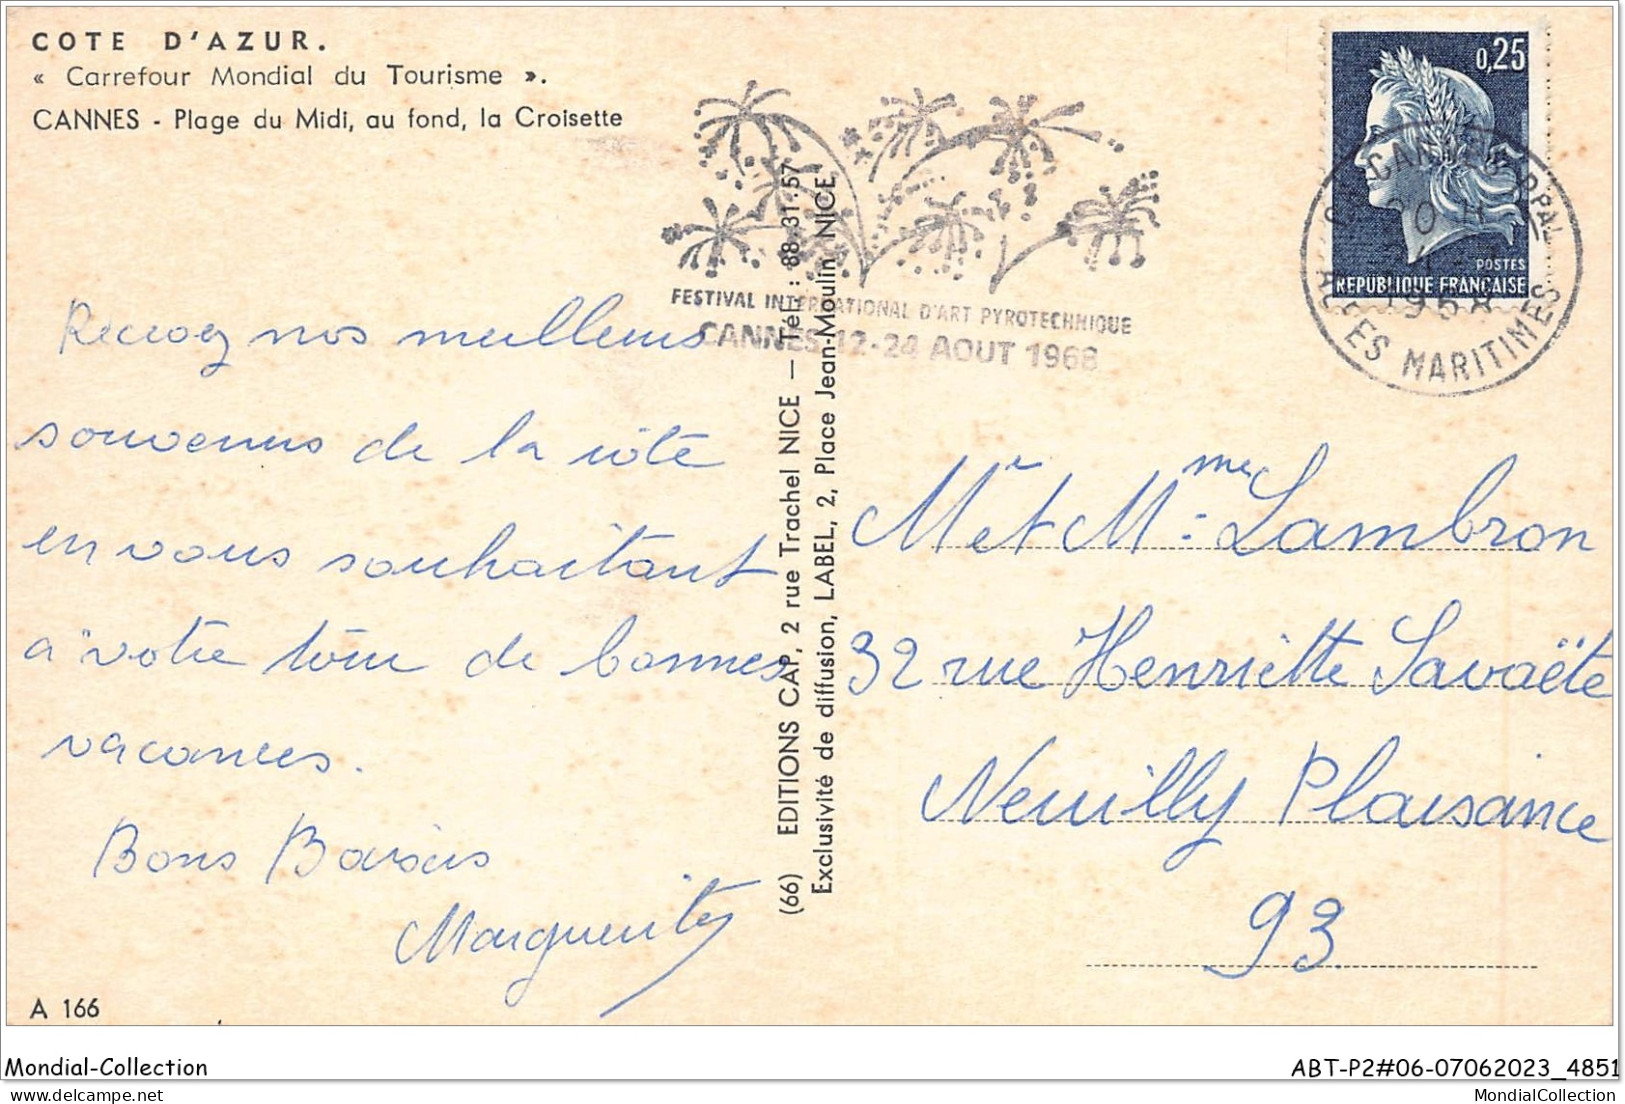 COTE D'AZUR.
« Carrefour Mondial du Tourisme ».
CANNES - Plage du Midi, au fond, la Croisette
Recevez nos meilleurs
souvenirs de la côte
en vous souhaitant
à votre tour de bonnes
vacances.
Bons Baisers
Marguerite
A 166
(66) EDITIONS CAP, 2 rue Trachel NICE — Tél. : 88.31.57
Exclusivité de diffusion, LABEL, 2, Place Jean-Moulin NICE
FESTIVAL INTERNATIONAL D'ART PYROTECHNIQUE
CANNES 12-24 AOUT 1968
0,25
POSTES
REPUBLIQUE FRANÇAISE
CANNES PPAL
20
1968
ALPES MARITIMES
Mr et Mme Lambron
32 rue Henriette Savaëte
Neuilly Plaisance
93
Mondial-Collection
ABT-P2#06-07062023_4851
MondialCollection